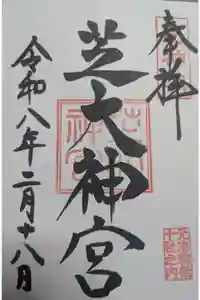 奉拝
芝大神宮
令和八年二月十八日